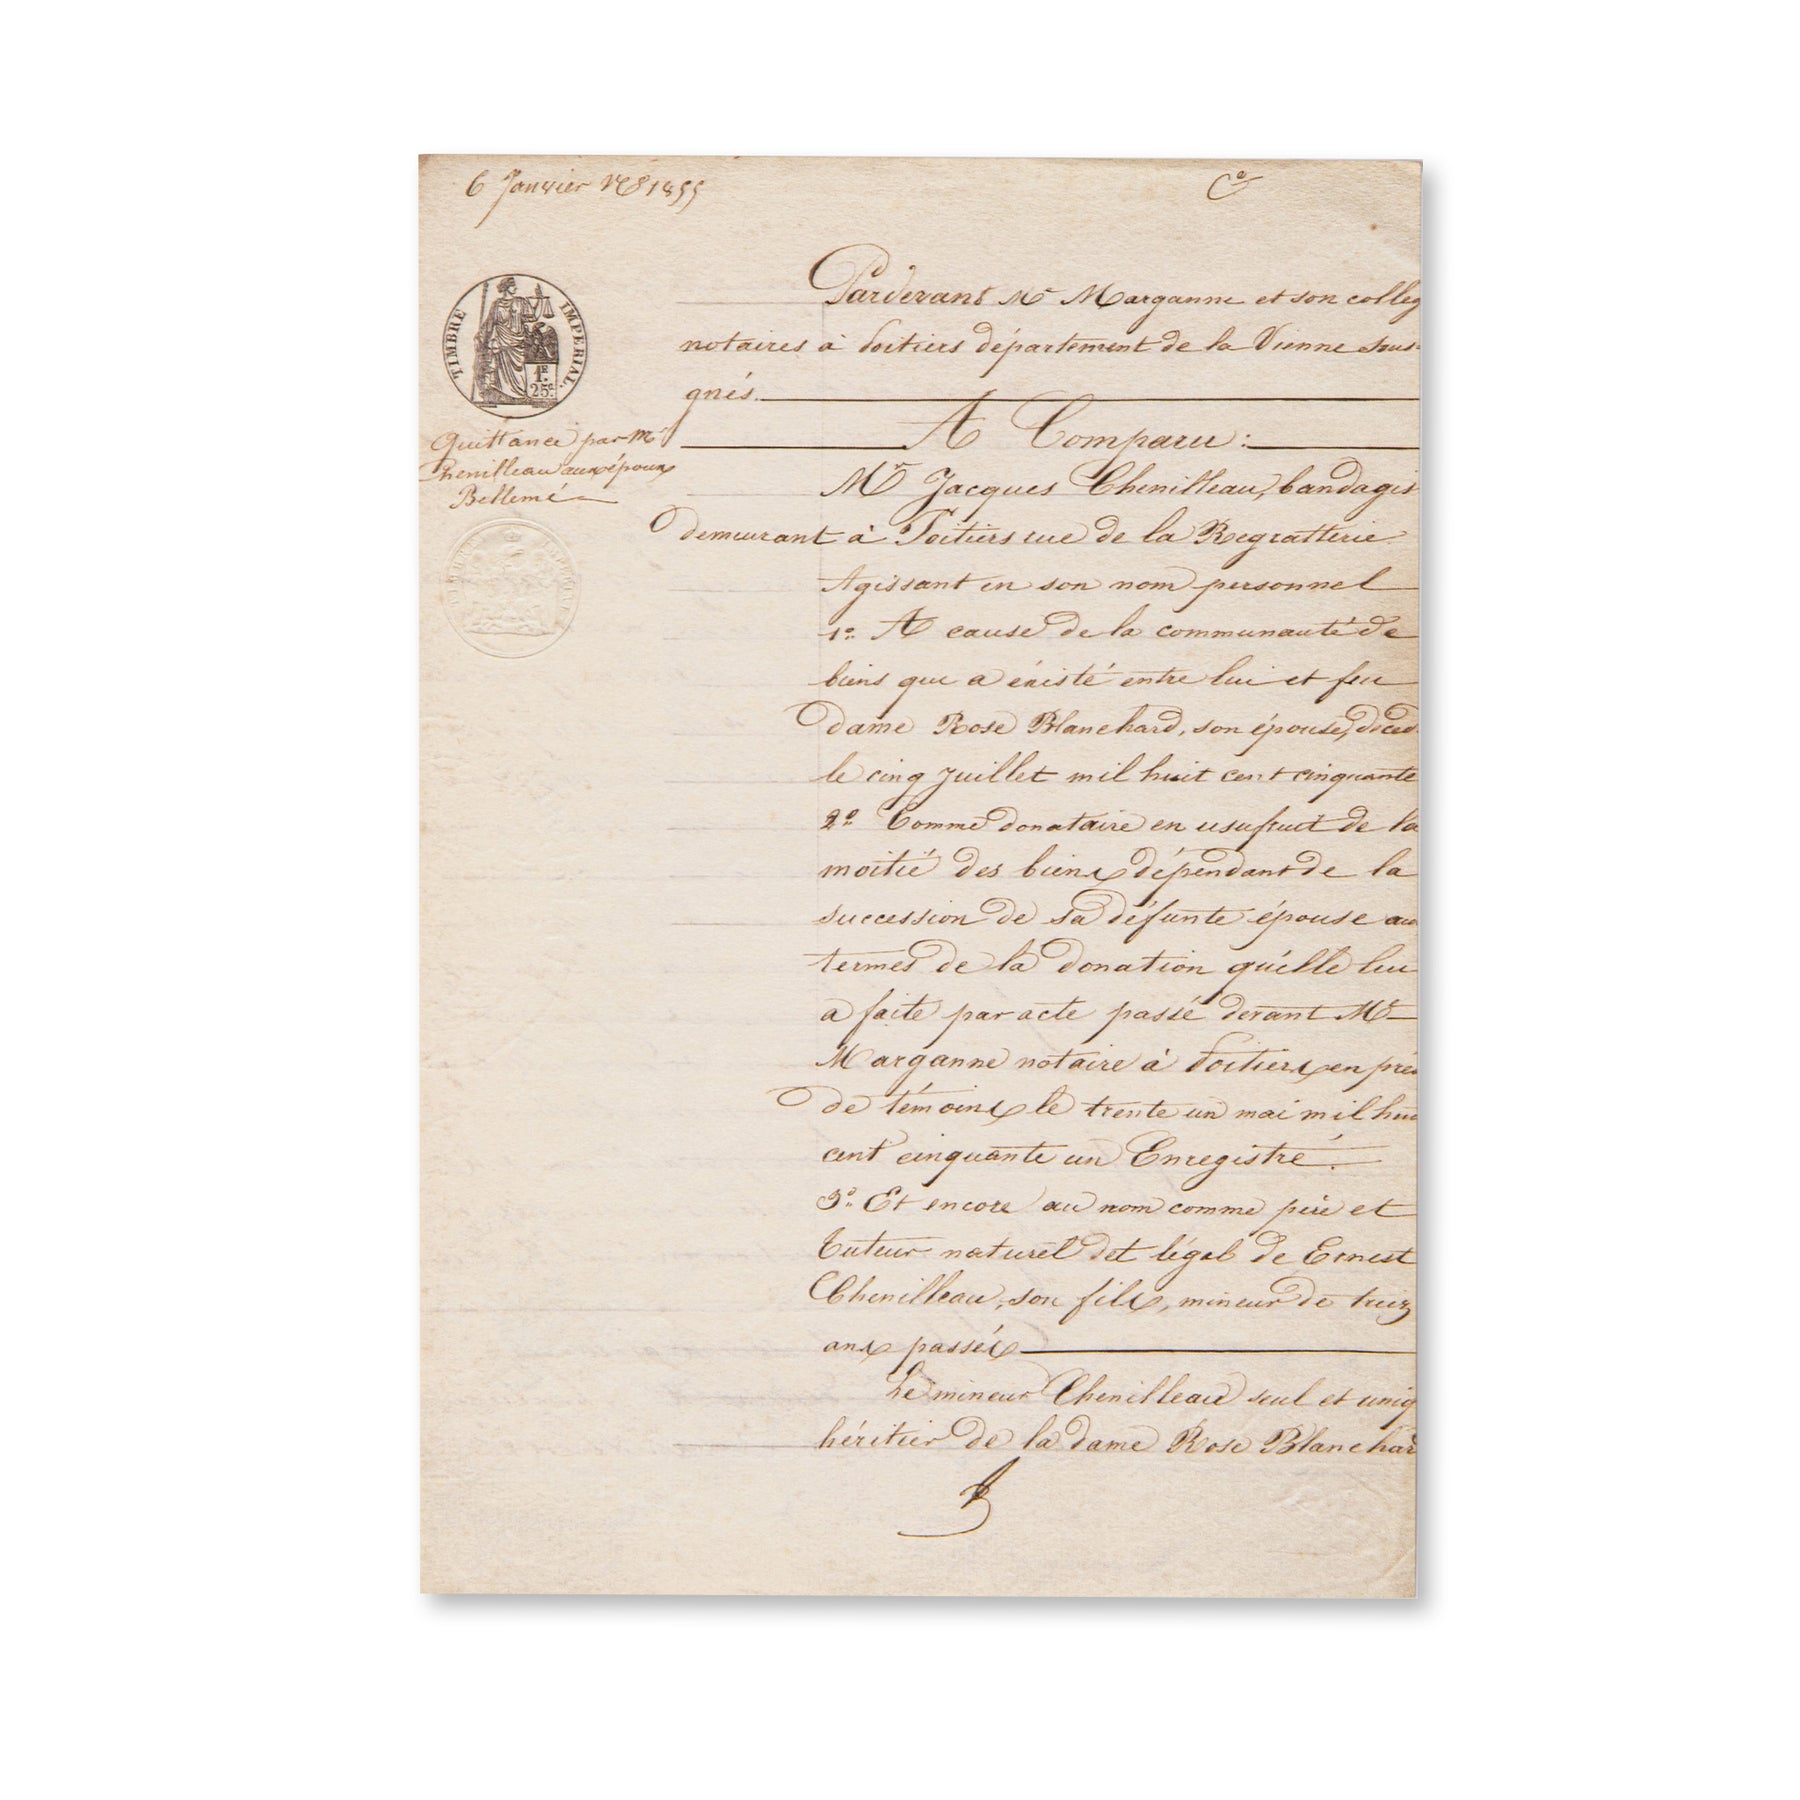 6 Janvier 1855
Ce
TIMBRE IMPERIAL.
1F.
25c.
Quittance par Mr
Chenilleau aux époux
Bellemé
Pardevant Me Marganne et son colleg
notaires à Poitiers département de la Vienne sous-
gnés.
A Comparu :
Mr Jacques Chenilleau, bandagis
demeurant à Poitiers rue de la Regratterie.
Agissant en son nom personnel
1o. A cause de la communauté de
biens qui a éxisté entre lui et feu
dame Rose Blanchard, son épouse, décéd
le cinq Juillet mil huit cent cinquante
2o Comme donataire en usufruit de la
moitié des biens dépendant de la
succession de sa défunte épouse aux
termes de la donation qu'elle lui
a faite par acte passé devant Me
Marganne notaire à Poitiers en prés
de témoins le trente un mai mil hui
cent cinquante un Enregistré.
3o. Et encore au nom comme père et
tuteur naturel et légal de Ernest
Chenilleau, son fils, mineur de treiz
ans passés
Le mineur Chenilleau seul et uniq
héritier de la dame Rose Blanchar